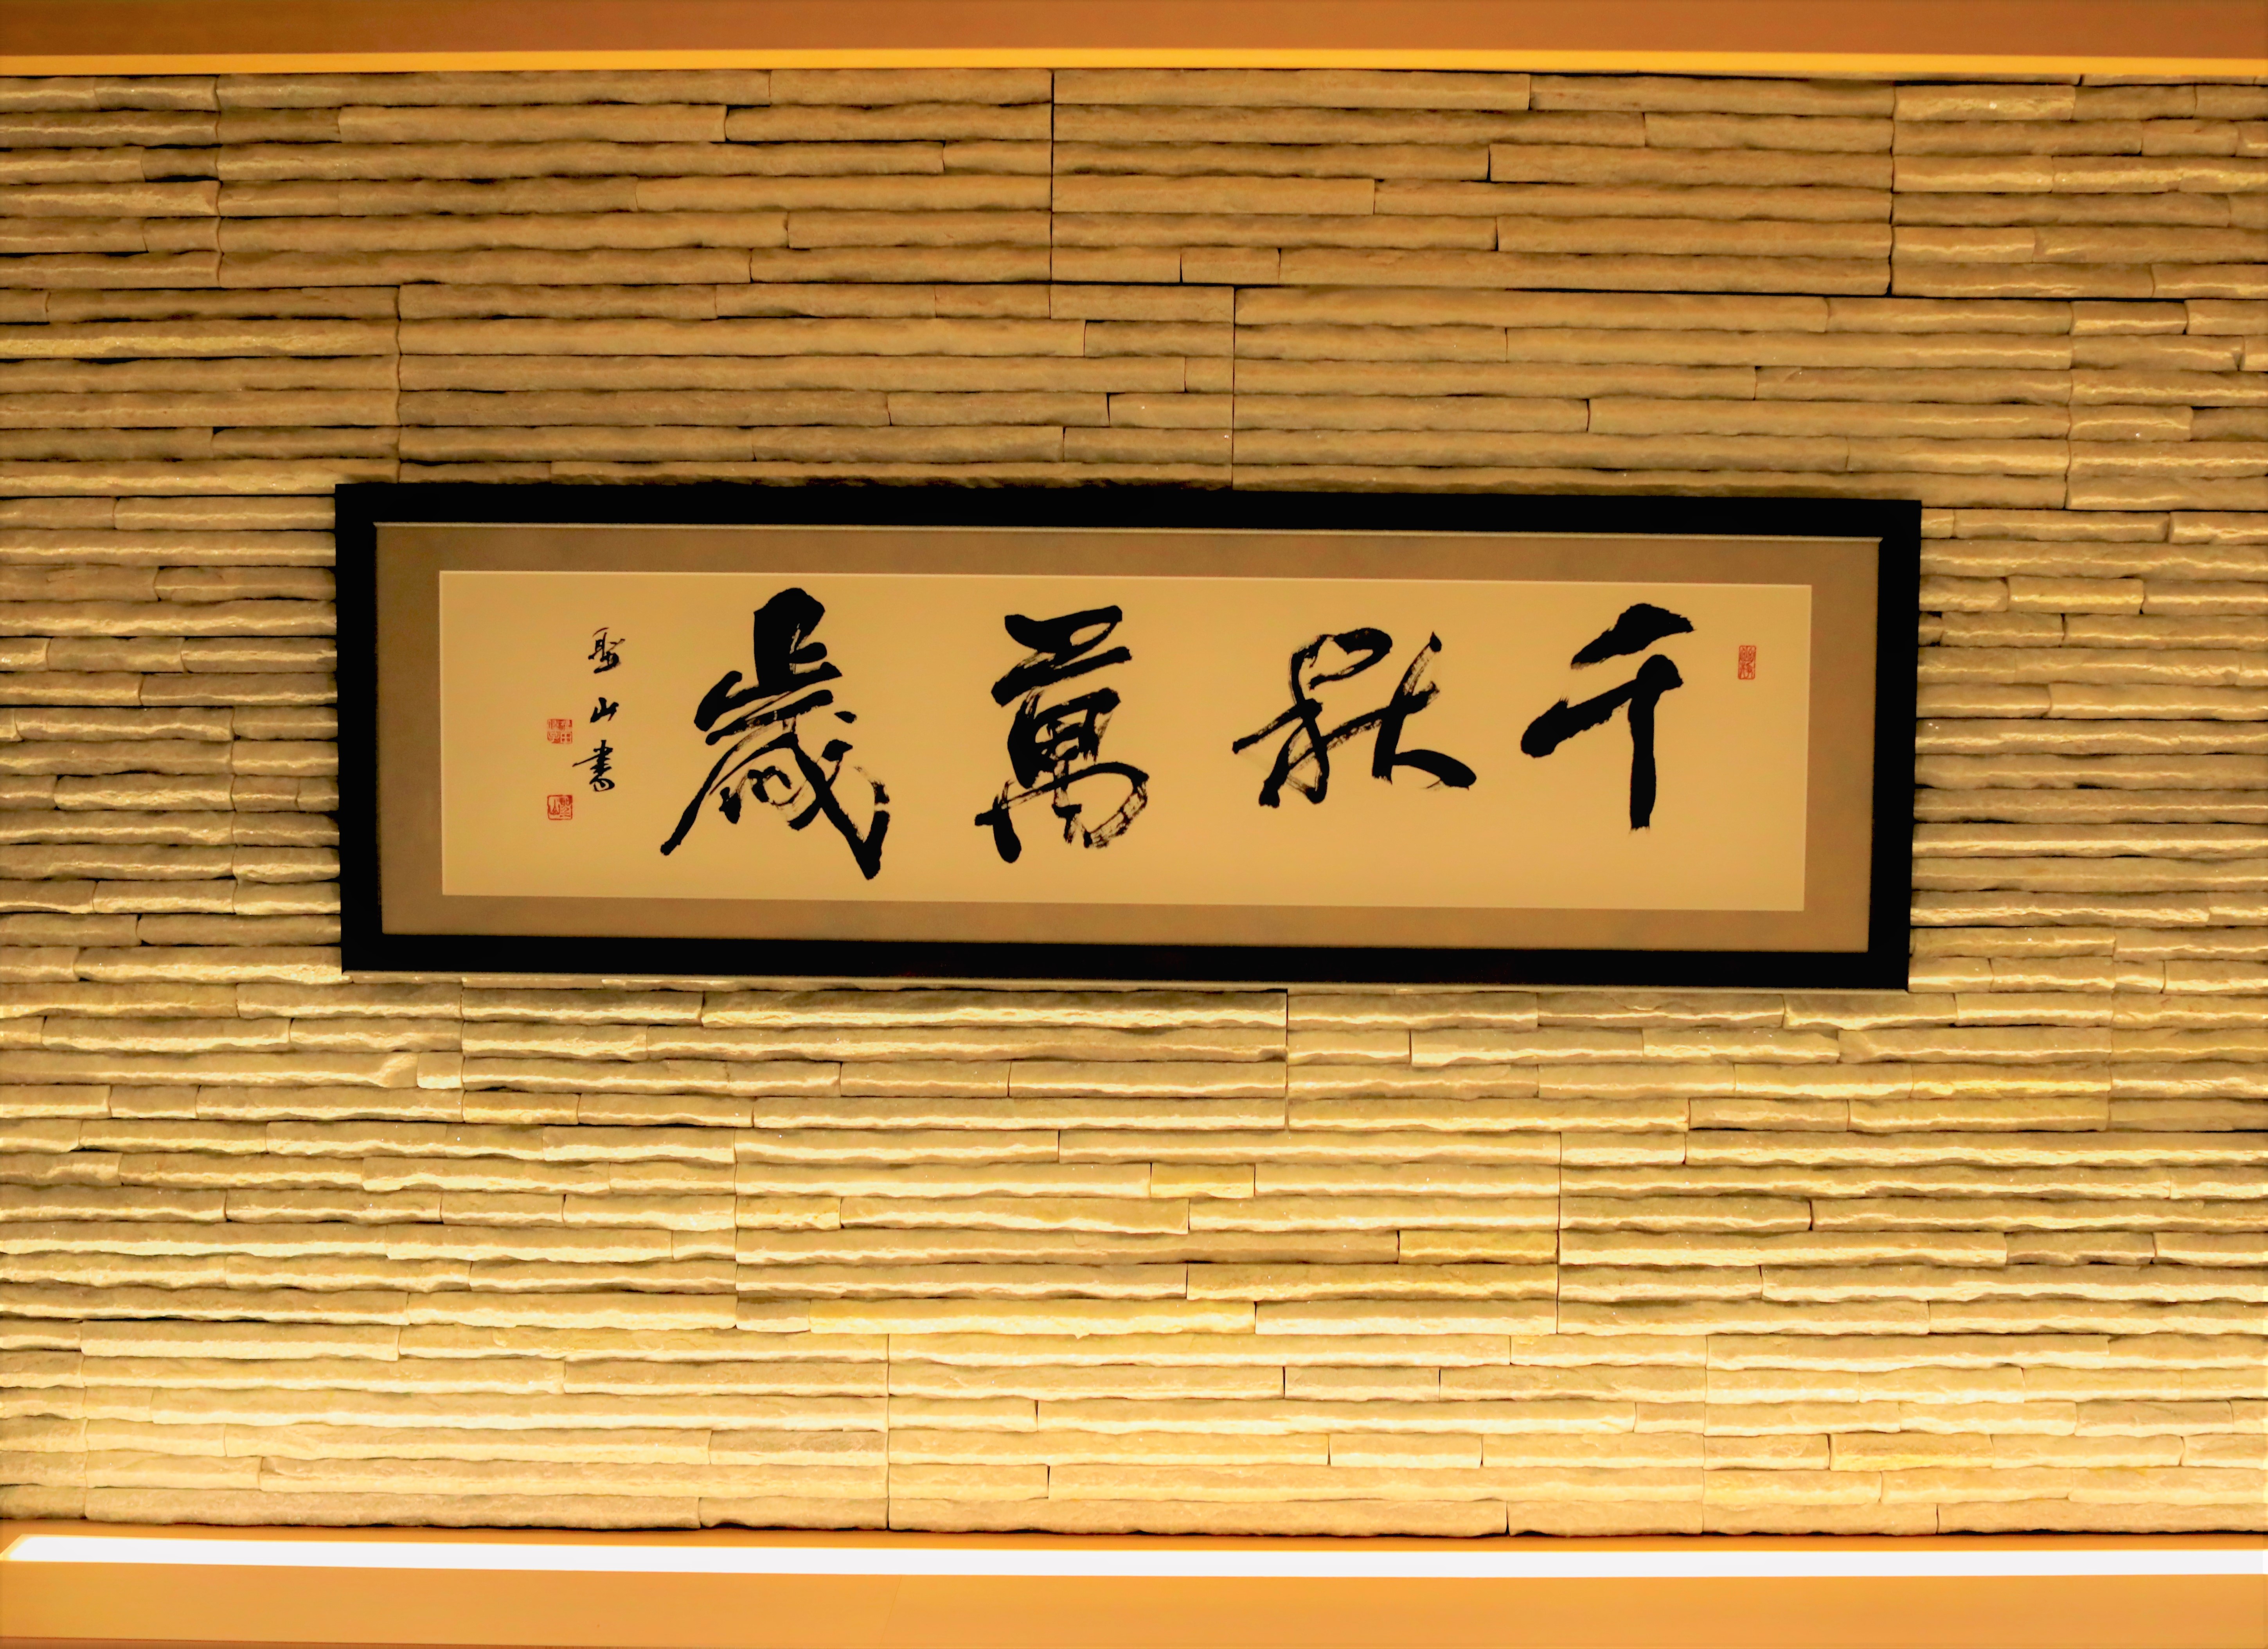 千秋萬歳
聖山書